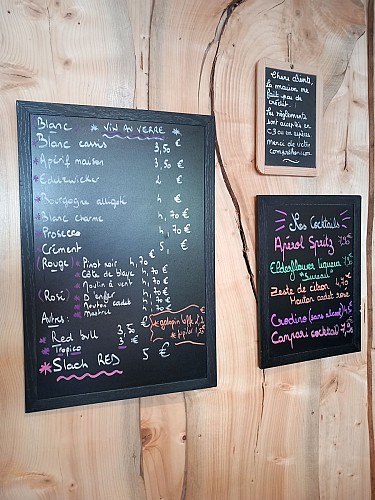 Blanc * VIN AU VERRE *
* Blanc cassis 3,50 €
* Apéritif maison 3,50 €
* Edelzwicker 2 €
* Bourgogne aligoté 4 €
* Blanc charme 4,70 €
Prosecco 4,70 €
Crémant 5 €
(Rouge) * Pinot noir 4,70 €
* Côte de blaye 4,70 €
* Moulin à vent
(Rosé) * D'enfer
* Mouton cadet
Autres:
* Red bull 3,50 €
* Tropico 3 €
* Slach RED 5 €
Chers clients,
la maison ne
fait pas de
crédit.
Les règlements
sont acceptés en
C.B ou en espèces
merci de votre
compréhension
Les Cocktails
Aperol Spritz
Elderflower liqueur
"Sureau"
Zeste de citron 4,70
Mouton cadet rosé
Crodino (sans alcool)
Campari cocktail